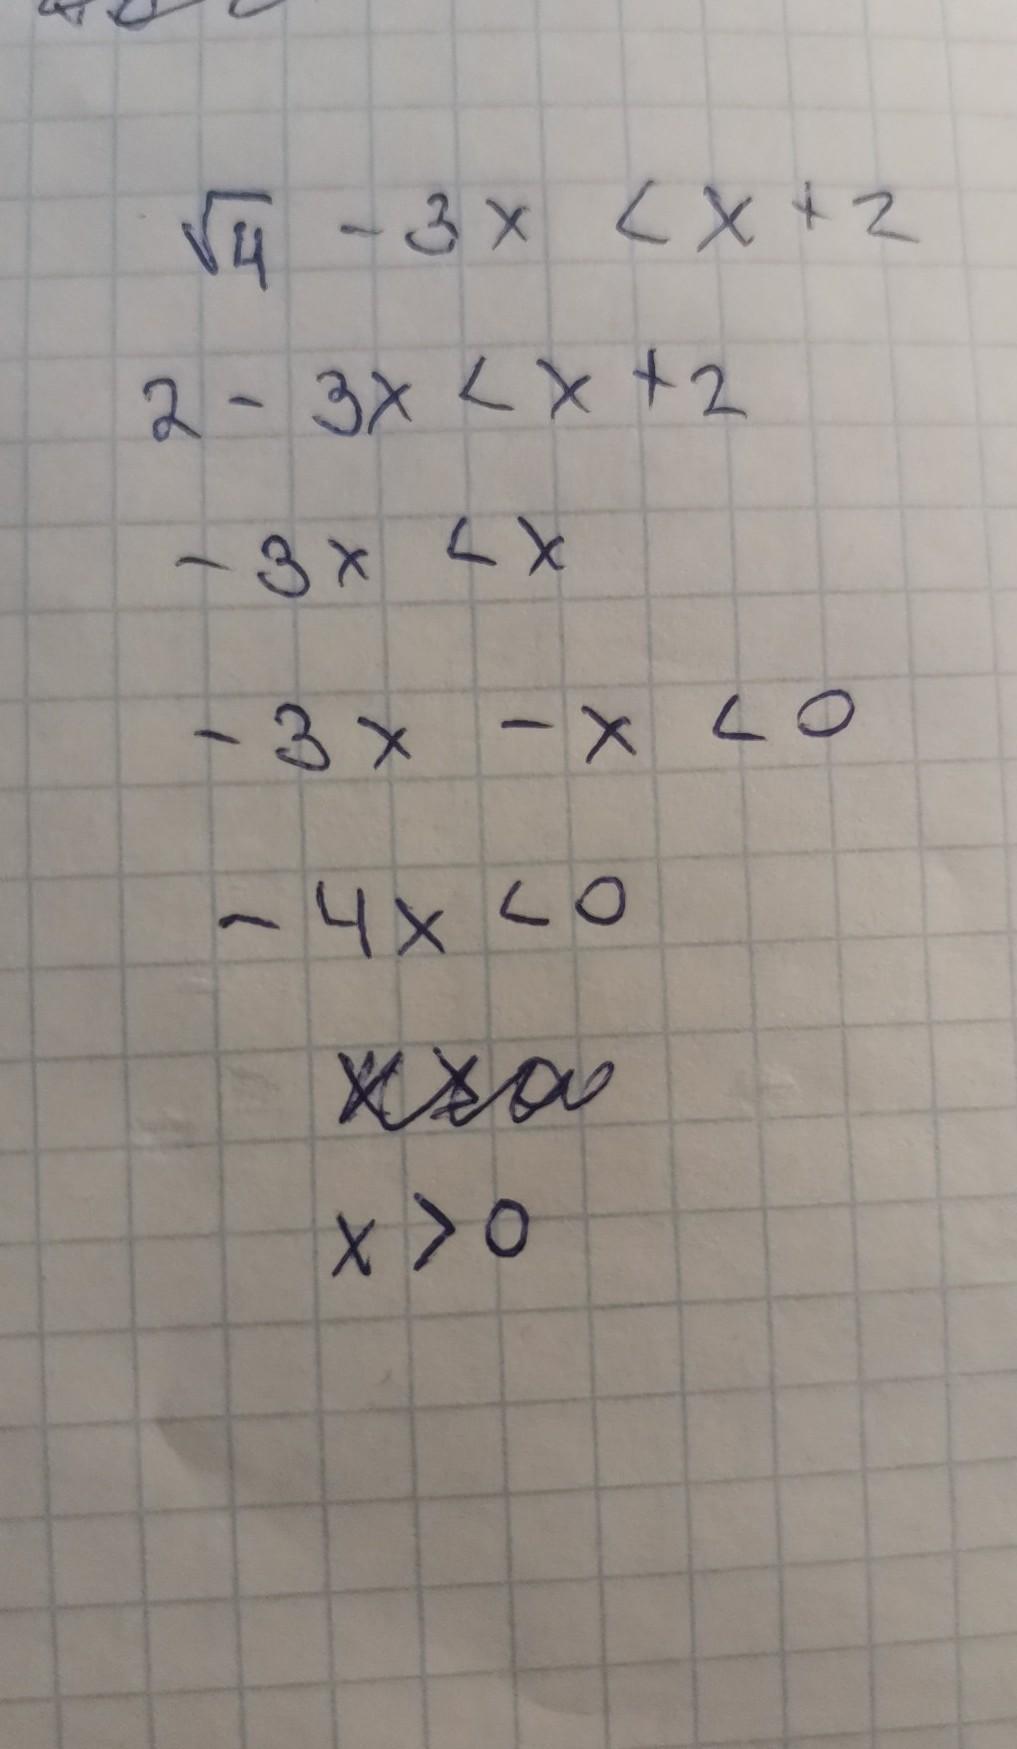 √4 - 3x < x + 2
2 - 3x < x + 2
- 3x < x
- 3x - x < 0
- 4x < 0
x > 0